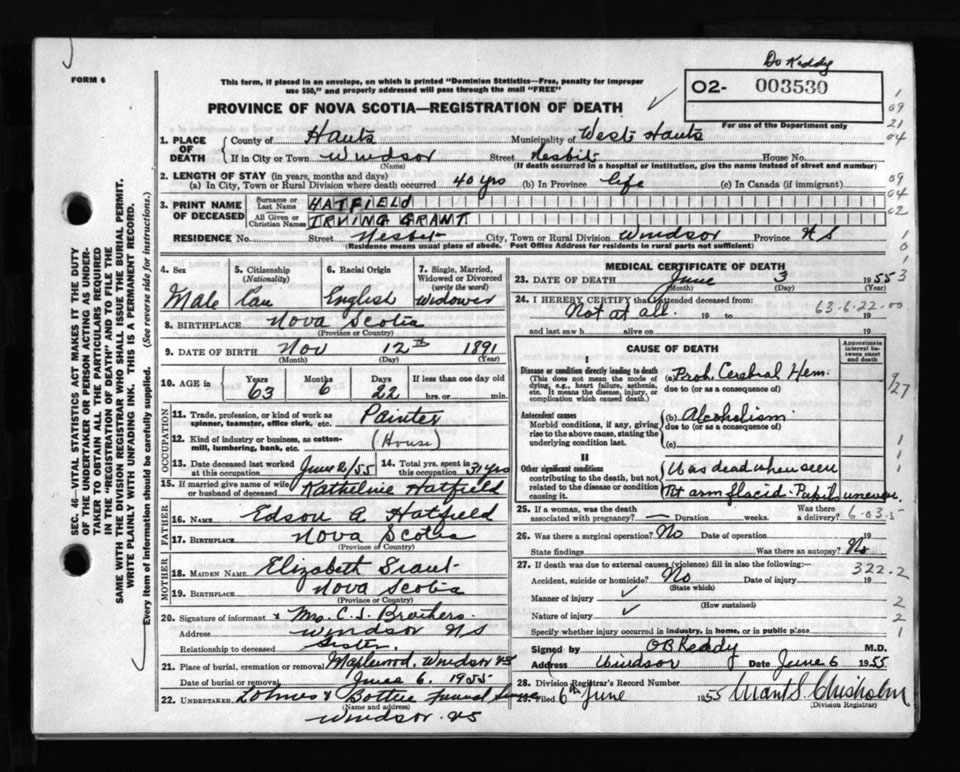 FORM 6
Dr Keddy
This form, if placed in an envelope, on which is printed "Dominion Statistics—Free, penalty for improper
use $50," and properly addressed will pass through the mail "FREE"
02- 003530
PROVINCE OF NOVA SCOTIA—REGISTRATION OF DEATH
For use of the Department only
1. PLACE OF DEATH County of Hants Municipality of West Hants
If in City or Town Windsor Street Nesbit House No.
(Name) (If death occurred in a hospital or institution, give the name instead of street and number)
2. LENGTH OF STAY (in years, months and days)
(a) In City, Town or Rural Division where death occurred 40 yrs (b) In Province life (c) In Canada (if immigrant)
3. PRINT NAME OF DECEASED Surname or Last Name HATFIELD
All Given or Christian Names IRVING GRANT
RESIDENCE No. Street Nesbit City, Town or Rural Division Windsor Province N S
(Residence means usual place of abode. Post Office Address for residents in rural parts not sufficient)
4. Sex Male
5. Citizenship (Nationality) Can
6. Racial Origin English
7. Single, Married, Widowed or Divorced (write the word) Widower
8. BIRTHPLACE Nova Scotia
(Province or Country)
9. DATE OF BIRTH Nov 12th 1891
(Month) (Day) (Year)
10. AGE in Years 63 Months 6 Days 22 If less than one day old hrs. or min.
OCCUPATION
11. Trade, profession, or kind of work as spinner, teamster, office clerk, etc. Painter
12. Kind of industry or business, as cotton-mill, lumbering, bank, etc. (House)
13. Date deceased last worked at this occupation June 2/55 14. Total yrs. spent in this occupation 31 yrs
15. If married give name of wife or husband of deceased Katheline Hatfield
FATHER
16. NAME Edson A Hatfield
17. BIRTHPLACE Nova Scotia
(Province of Country)
MOTHER
18. MAIDEN NAME Elizabeth Grant
19. BIRTHPLACE Nova Scotia
(Province or Country)
20. Signature of informant x Mrs. C. S. Brothers
Address Windsor N S
Relationship to deceased Sister.
21. Place of burial, cremation or removal Maplewood, Windsor NS
Date of burial or removal June 6. 1955
22. UNDERTAKER Lohnes & Bottie Funeral
(Name and address)
Windsor. NS
MEDICAL CERTIFICATE OF DEATH
23. DATE OF DEATH June 3 1955
(Month) (Day)
24. I HEREBY CERTIFY that I attended deceased from:
Not at all. 19 to 19
63-6-22-00
and last saw h alive on 19
CAUSE OF DEATH
Approximate interval between onset and death
I
Disease or condition directly leading to death (This does not mean the mode of dying, e.g., heart failure, asthenia, etc. It means the disease, injury, or complication which caused death.)
(a) Prob. Cerebral Hem.
due to (or as a consequence of)
Antecedent causes
Morbid conditions, if any, giving rise to the above cause, stating the underlying condition last.
(b) Alcoholism.
due to (or as a consequence of)
(c)
II
Other significant conditions contributing to the death, but not related to the disease or condition causing it.
Was dead when seen
Rt arm flacid - Pupils uneven.
25. If a woman, was the death associated with pregnancy? — Duration weeks. Was there a delivery? 6-03.5
26. Was there surgical operation? No Date of operation 19
State findings Was there an autopsy? No
27. If death was due to external causes (violence) fill in also the following:—
322.2
Accident, suicide or homicide? No Date of injury 19
(State which)
Manner of injury ✓
(How sustained)
Nature of injury ✓
Specify whether injury occurred in industry, in home, or in public place
Signed by OB Keddy M.D.
Address Windsor Date June 6 1955
28. Division Registrar's Record Number
29. Filed 6th June 1955 Grant S. Chisholm
(Division Registrar)
SEC. 46 VITAL STATISTICS ACT MAKES IT THE DUTY
OF THE UNDERTAKER OR PERSON ACTING AS UNDER-
TAKER TO OBTAIN ALL THE PARTICULARS REQUIRED
IN THE "REGISTRATION OF DEATH" AND TO FILE THE
SAME WITH THE DIVISION REGISTRAR WHO SHALL ISSUE THE BURIAL PERMIT.
WRITE PLAINLY WITH UNFADING INK. THIS IS A PERMANENT RECORD.
Every item of information should be carefully supplied. (See reverse side for instructions.)
1
09
21
04
09
04
02
1
0
1
3
9/27
1
1
1
2
2
1